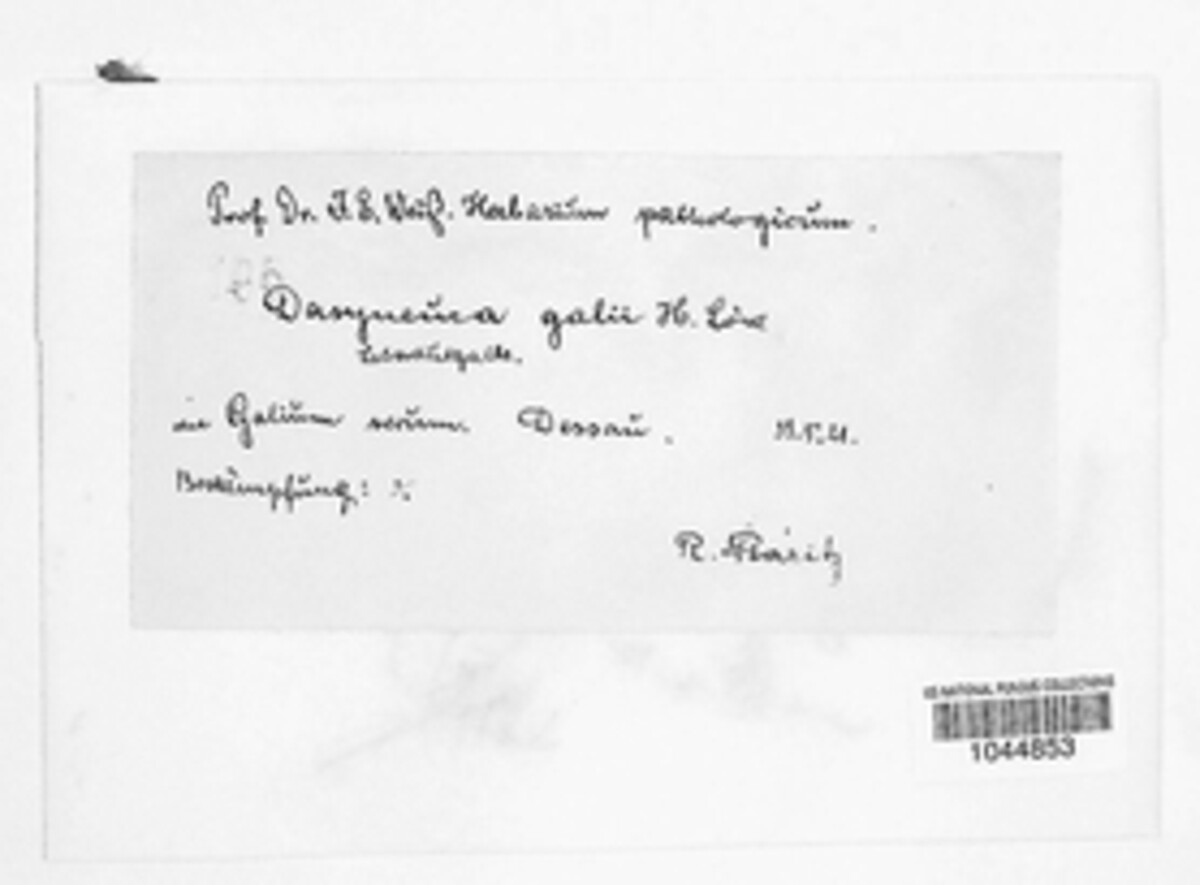 Prof. Dr. J. E. Weiß. Herbarium pathologicum.
Dasyneura galii H. Löw
in Galium verum. Dessau.
Bekämpfung: %
R. Staritz
US NATIONAL FUNGUS COLLECTIONS
1044853